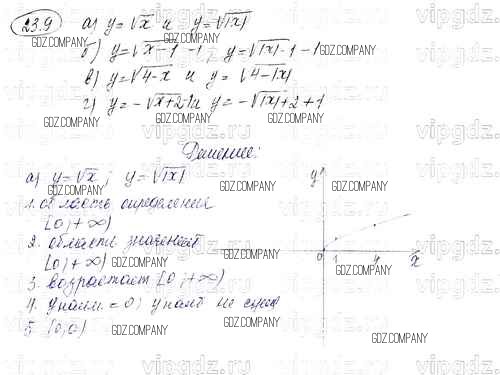 23.9
а) y = √x и y = √|x|
б) y = √x-1 - 1; y = √|x|-1 - 1
в) y = √4-x и y = √4-|x|
г) y = -√x+2+1 и y = -√|x|+2 + 1
Решение:
а) y = √x; y = √|x|
1. область определения
[0; +∞)
2. область значений
[0; +∞)
3. возрастает [0; +∞)
4. y наим = 0; y наиб не сущ
5. (0, 0)
y
0 1 4 x
GDZ.COMPANY
vipgdz.ru